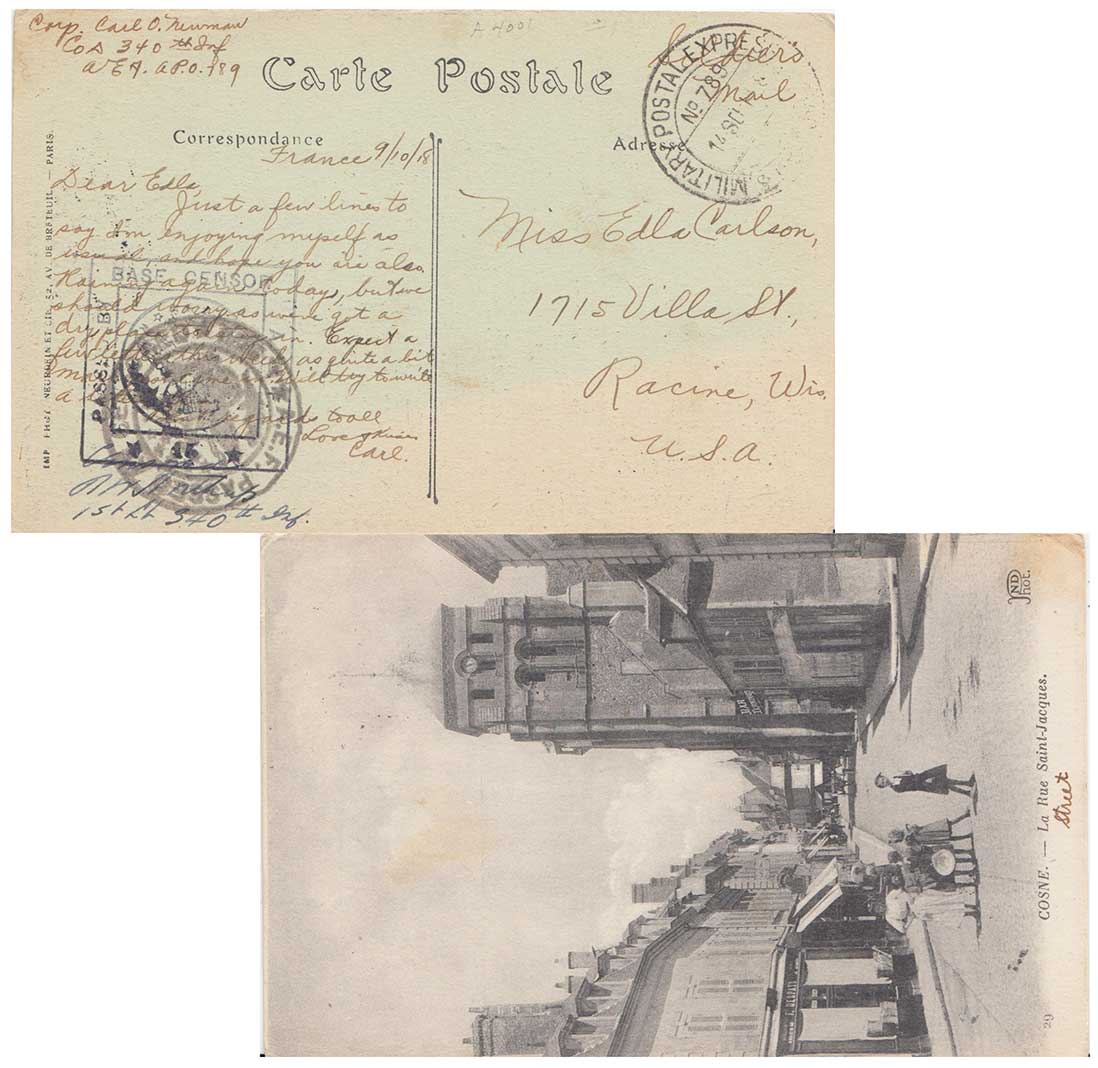 Corp. Carl O. Newman
Co A 340th Inf
A.E.F. A.P.O. 789
A 4001
Carte Postale
Soldier's
Mail
MILITARY POSTAL EXPRES
No 789
14 SEP
Correspondance
Adresse
France 9/10/18
Dear Edla,
Just a few lines to
say I'm enjoying myself as
usual, and hope you are also.
Raining again today, but we
should worry as we've got a
dry place to stay in. Expect a
few letters this week as quite a bit
me. Will try to write
a
regards to all
Love & Kisses
Carl.
BASE CENSOR
PASSED BY
A.E.F.
PASSED
1st Lt 340th Inf.
Miss Edla Carlson,
1715 Villa St.,
Racine, Wis.
U.S.A.
IMP. PHOT. NEURDEIN ET CIE, 52, AV. DE BRETEUIL. — PARIS.
ND
Phot.
BAR
29
COSNE. — La Rue Saint-Jacques.
Street